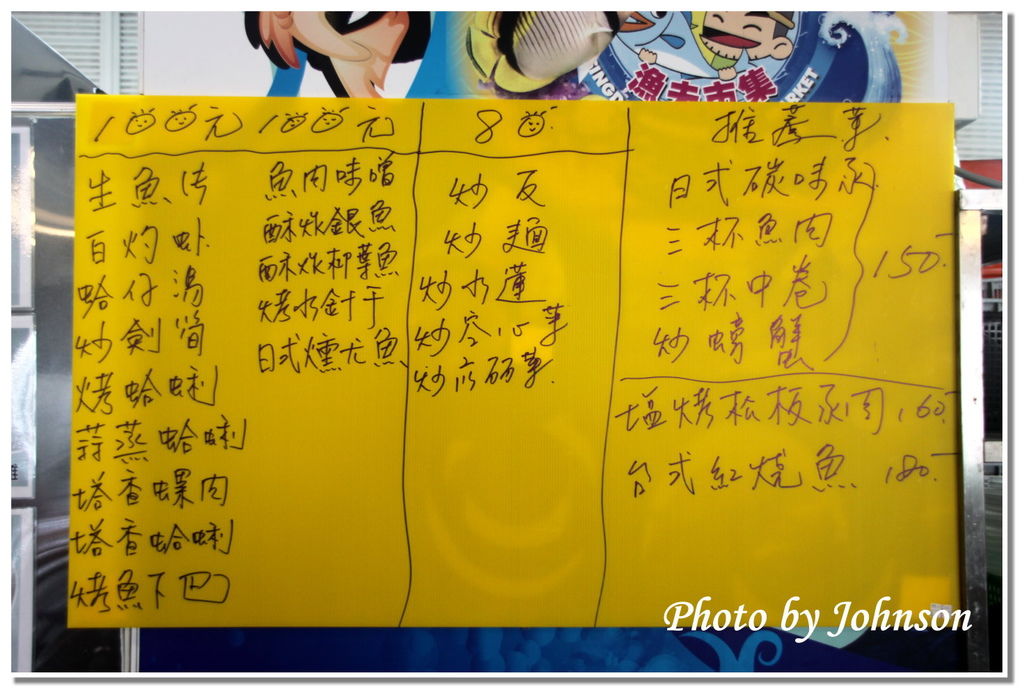 漁夫市集
100元
生魚片
白灼虾
蛤仔湯
炒劍筍
烤蛤蜊
蒜蒸蛤蜊
塔香螺肉
塔香蛤蜊
烤魚下巴
100元
魚肉味噌
酥炸銀魚
酥炸柳葉魚
烤水針干
日式燻尤魚
80
炒反
炒麵
炒水蓮
炒空心菜
推薦菜.
日式碳味
三杯魚肉
三杯中卷
炒螃蟹
150.-
塩烤松板 肉 160.-
台式紅燒魚 180.-
Photo by Johnson